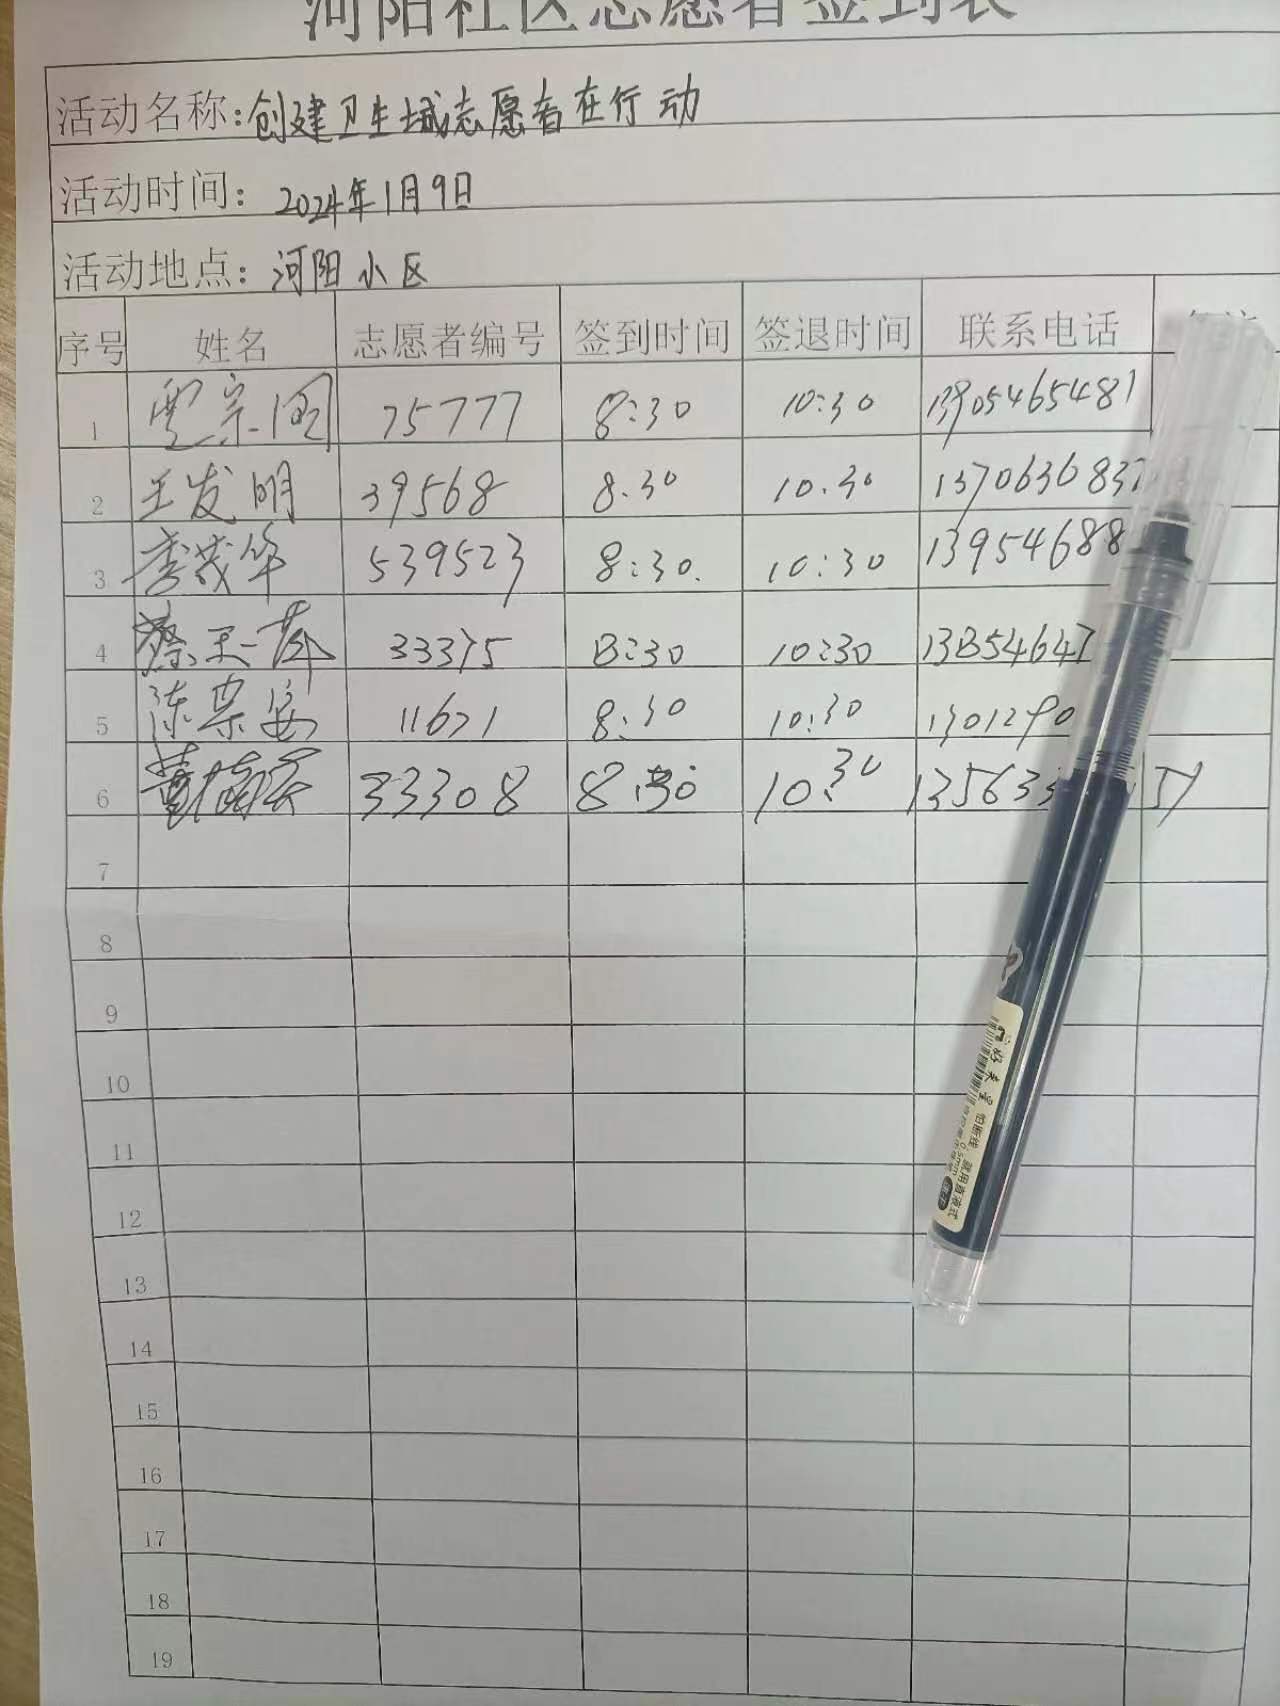 河阳社区志愿者签到表
活动名称:创建卫生城志愿者在行动
活动时间: 2024年1月9日
活动地点: 河阳小区
序号 姓名 志愿者编号 签到时间 签退时间 联系电话
1 宗国 75777 8:30 10:30 13905465481
2 王发明 39568 8.30 10.30 1370636837
3 李茂华 539523 8:30. 10:30 13954688
4 蔡 33375 8:30 10:30 13854647
5 陈荣安 11671 8:30 10:30 1301290
6 黄 33308 8:30 10:30 135633 51
7
8
9
10
11
12
13
14
15
16
17
18
19
好夫星
怕断线, 就用直液式
0.5mm